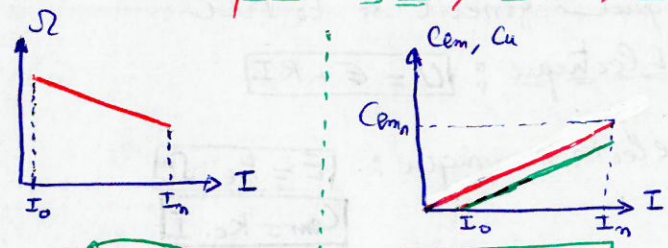 Ω
I₀
Iₙ
I
Cem, Cu
Cemₙ
I₀
Iₙ
I